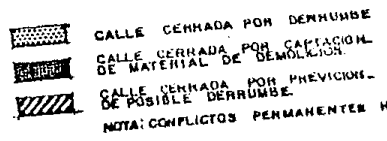 CALLE CERRADA POR DERRUMBE
CALLE CERRADA POR CAPTACION
DE MATERIAL DE DEMOLICION.
CALLE CERRADA POR PREVICION
DE POSIBLE DERRUMBE.
NOTA: CONFLICTOS PERMANENTES